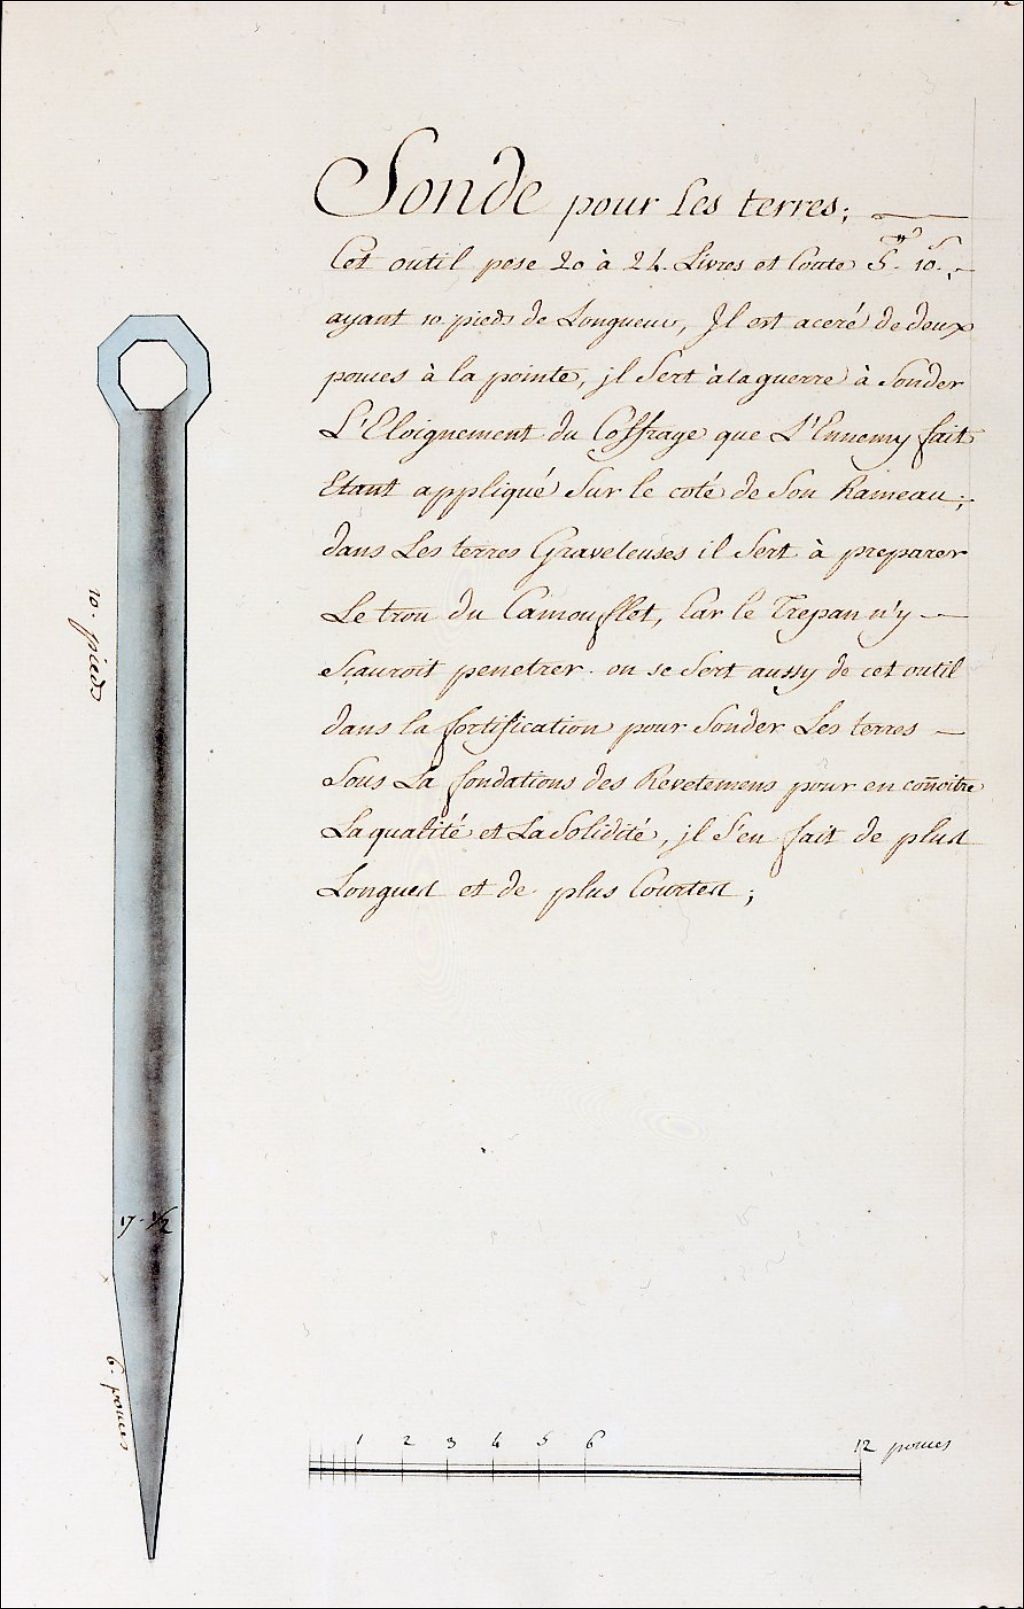 Sonde pour Les terres;
Cet outil pese 20 à 24. Livres et Coute 5.tt 10.s
ayant 10. pieds de Longueur, Il est aceré de deux
pouces à la pointe, jl Sert à la guerre à Sonder
L'Eloignement du Coffrage que L'Ennemy fait
Etant appliqué Sur le coté de Son Rameau;
dans Les terres Graveleuses il Sert à preparer
Le trou du Camoufflet, Car le Trepan n'y
Sçauroit penetrer. on se Sert aussy de cet outil
dans la fortification pour Sonder Les terres
Sous La fondations des Revetemens pour en coñoitre
La qualité et La Solidité, jl S'en fait de plus
Longues et de plus Courtes;
10. pieds
17. 1/2
6. pouces
1 2 3 4 5 6 12 pouces